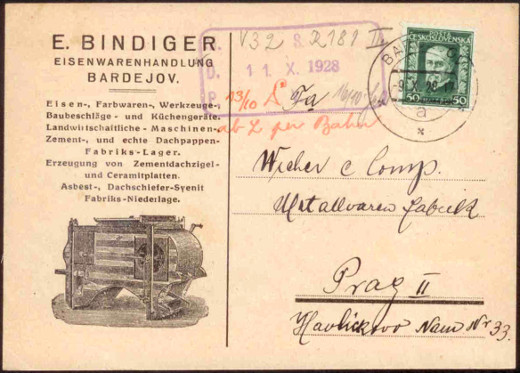 E. BINDIGER
EISENWARENHANDLUNG
BARDEJOV.
Eisen-, Farbwaren-, Werkzeuge-,
Baubeschläge- und Küchengeräte.
Landwirtschaftliche - Maschinen-
Zement-, und echte Dachpappen-
Fabriks-Lager.
Erzeugung von Zementdachzigel-
und Ceramitplatten.
Asbest-, Dachschiefer-Syenit
Fabriks-Niederlage.
V32 R181 II
S
D. 11. X. 1928
P
13/10
ab L per Bahn
Fa
16/10
ČESKOSLOVENSKÁ
50 50
BA
9. X. 28
a
Wicher & Comp.
Metallvaren Fabrik
Prag II
Havlickovo Nam Nr 33.